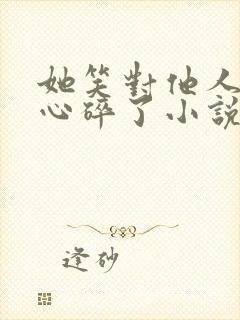 她笑對他人
心碎了小説
逢砂